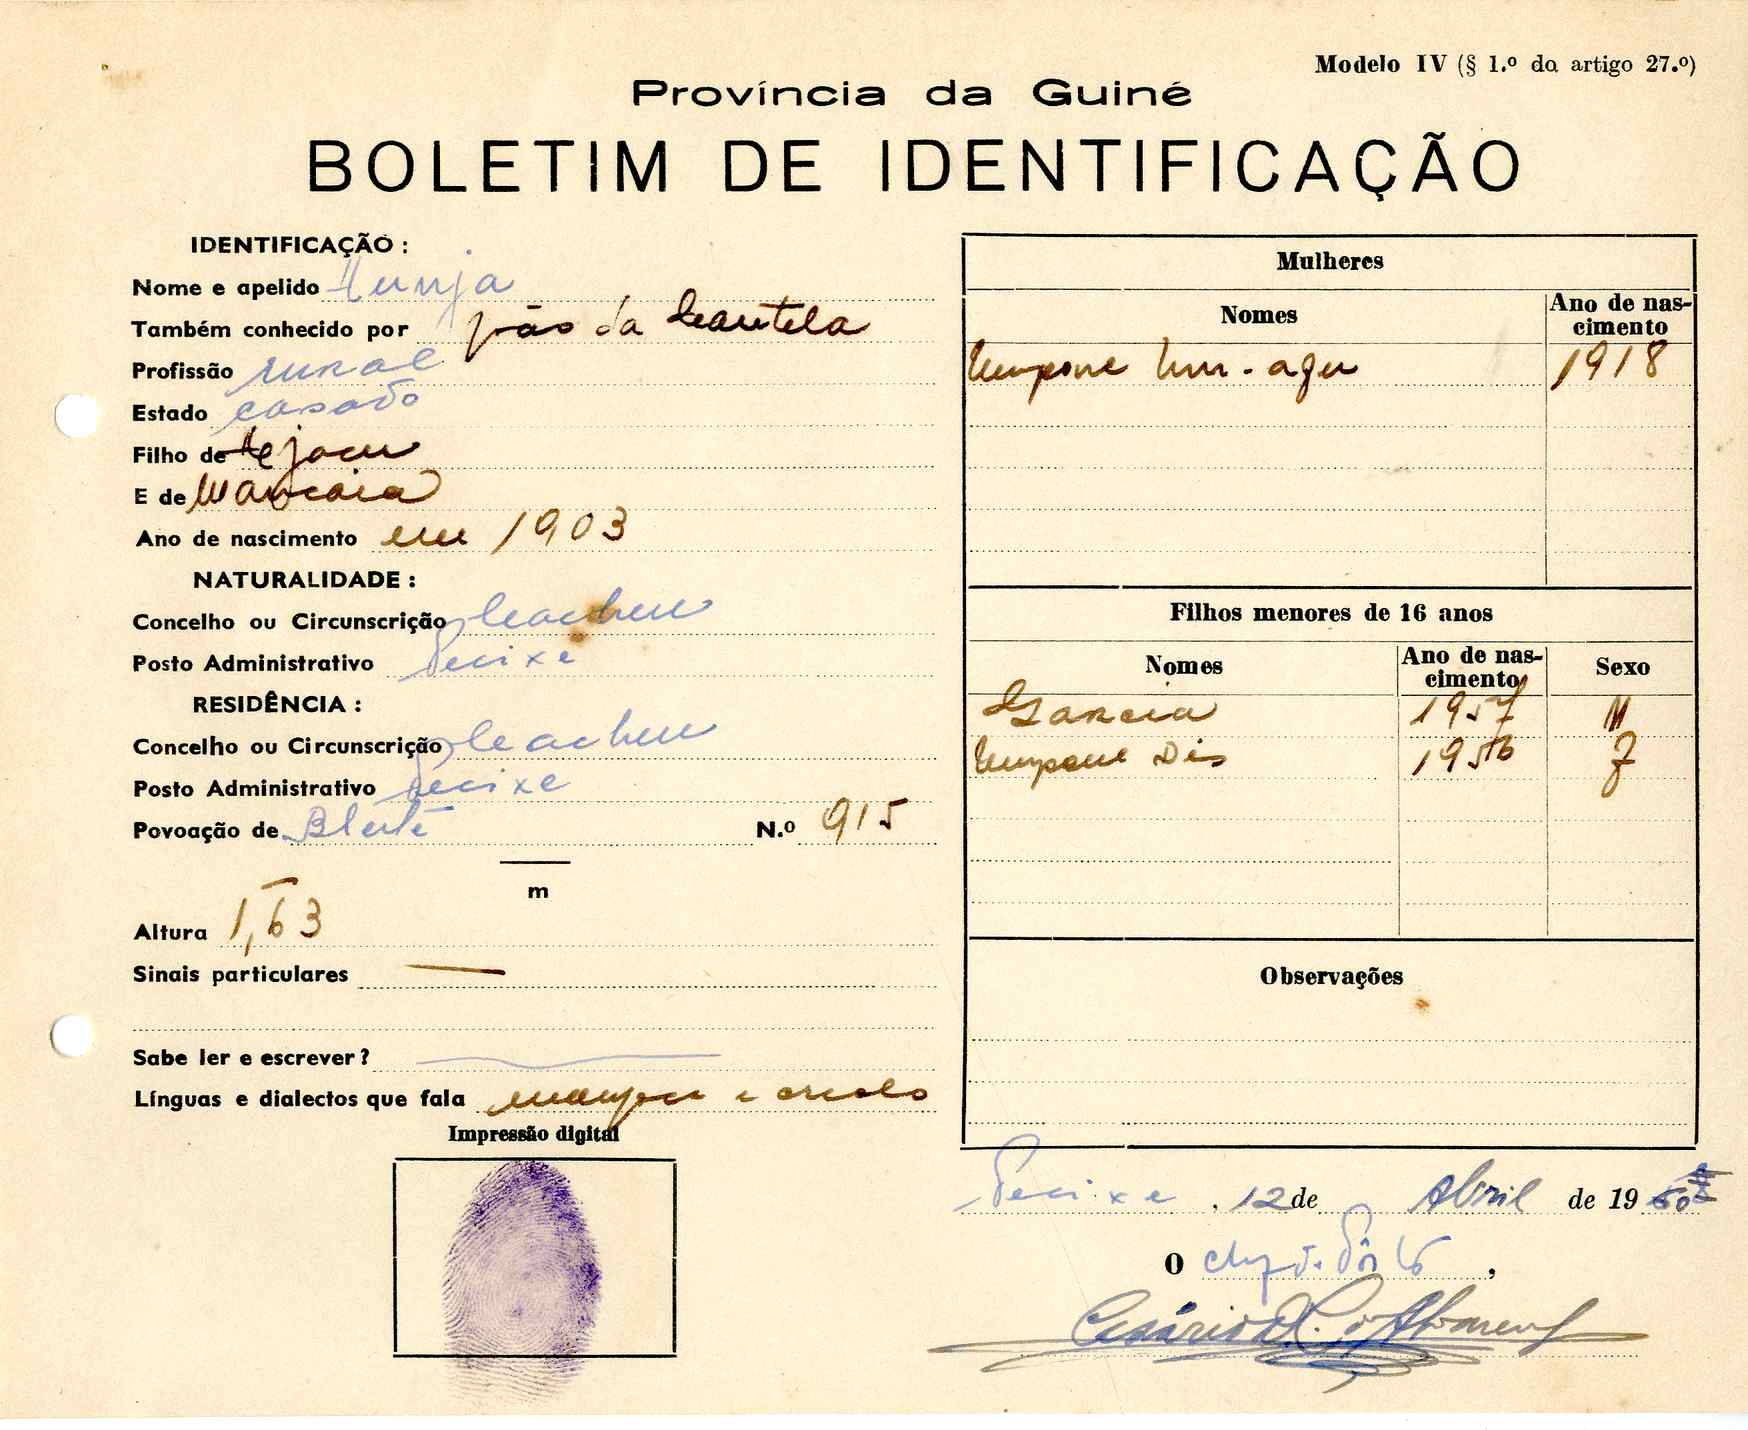 Modelo IV (§ 1.º do artigo 27.º)
Província da Guiné
BOLETIM DE IDENTIFICAÇÃO
IDENTIFICAÇÃO :
Nome e apelido
Também conhecido por João da
Profissão rural
Estado casado
Filho de
E de
Ano de nascimento em 1903
NATURALIDADE :
Concelho ou Circunscrição Cacheu
Posto Administrativo Pecixe
RESIDÊNCIA :
Concelho ou Circunscrição Cacheu
Posto Administrativo Pecixe
Povoação de N.º 915
m
Altura 1,63
Sinais particulares —
Sabe ler e escrever?
Línguas e dialectos que fala manjaco e crioulo
Impressão digital
Mulheres
Nomes Ano de nas-
cimento
1918
Filhos menores de 16 anos
Nomes Ano de nas-
cimento Sexo
Garcia 1957 M
1956 F
Observações
Pecixe, 12 de Abril de 1960
O chefe do Pôsto,